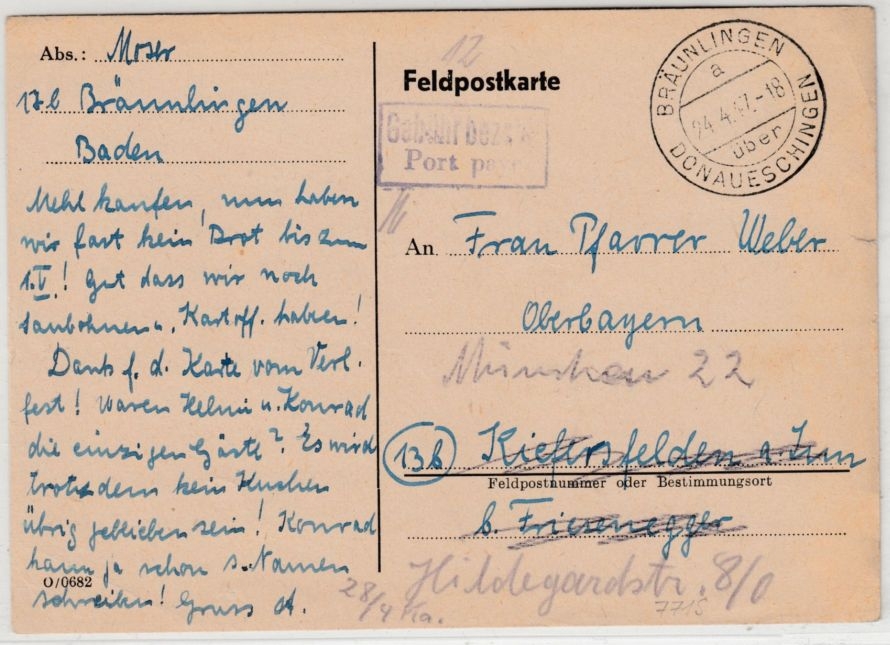 Abs.: Moser
17b Bräunlingen
Baden
Mehl kaufen, nun haben
wir fast kein Brot bis zum
1.V! Gut dass wir noch
Saubohnen u. Kartoff. haben!
Dank f. d. Karte vom Verl.
fest! Waren Helmi u. Konrad
die einzigen Gäste? Es wird
trotzdem kein Kuchen
übrig geblieben sein! Konrad
kann ja schon s. Namen
schreiben! Gruss A.
O/0682
12
Feldpostkarte
Gebühr bezahlt
Port payé
BRÄUNLINGEN
a
24.4.47.-18
über
DONAUESCHINGEN
An Frau Pfarrer Weber
Oberbayern
München 22
13b Kiefersfelden a. Inn
Feldpostnummer oder Bestimmungsort
b. Friesenegger
Hildegardstr. 8/0
28/4 Ka.
771S